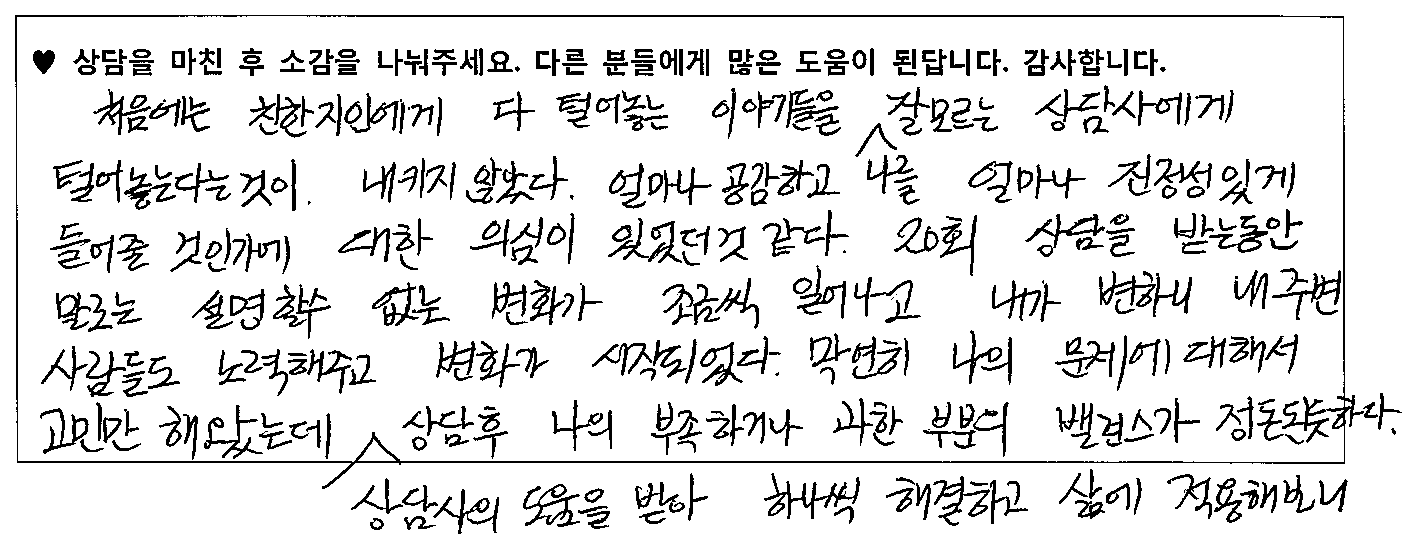 ♥ 상담을 마친 후 소감을 나눠주세요. 다른 분들에게 많은 도움이 된답니다. 감사합니다.
처음에는 친한지인에게 다 털어놓는 이야기들을 잘모르는 상담사에게
털어놓는다는것이 내키지 않았다. 얼마나 공감하고 나를 얼마나 진정성있게
들어줄 것인가에 대한 의심이 있었던것 같다. 20회 상담을 받는동안
말로는 설명할수 없는 변화가 조금씩 일어나고 내가 변하니 내주변
사람들도 노력해주고 변화가 시작되었다. 막연히 나의 문제에대해서
고민만 해왔는데 상담후 나의 부족하거나 과한 부분의 밸런스가 정돈된듯하다.
상담사의 도움을 받아 하나씩 해결하고 삶에 적용해보니